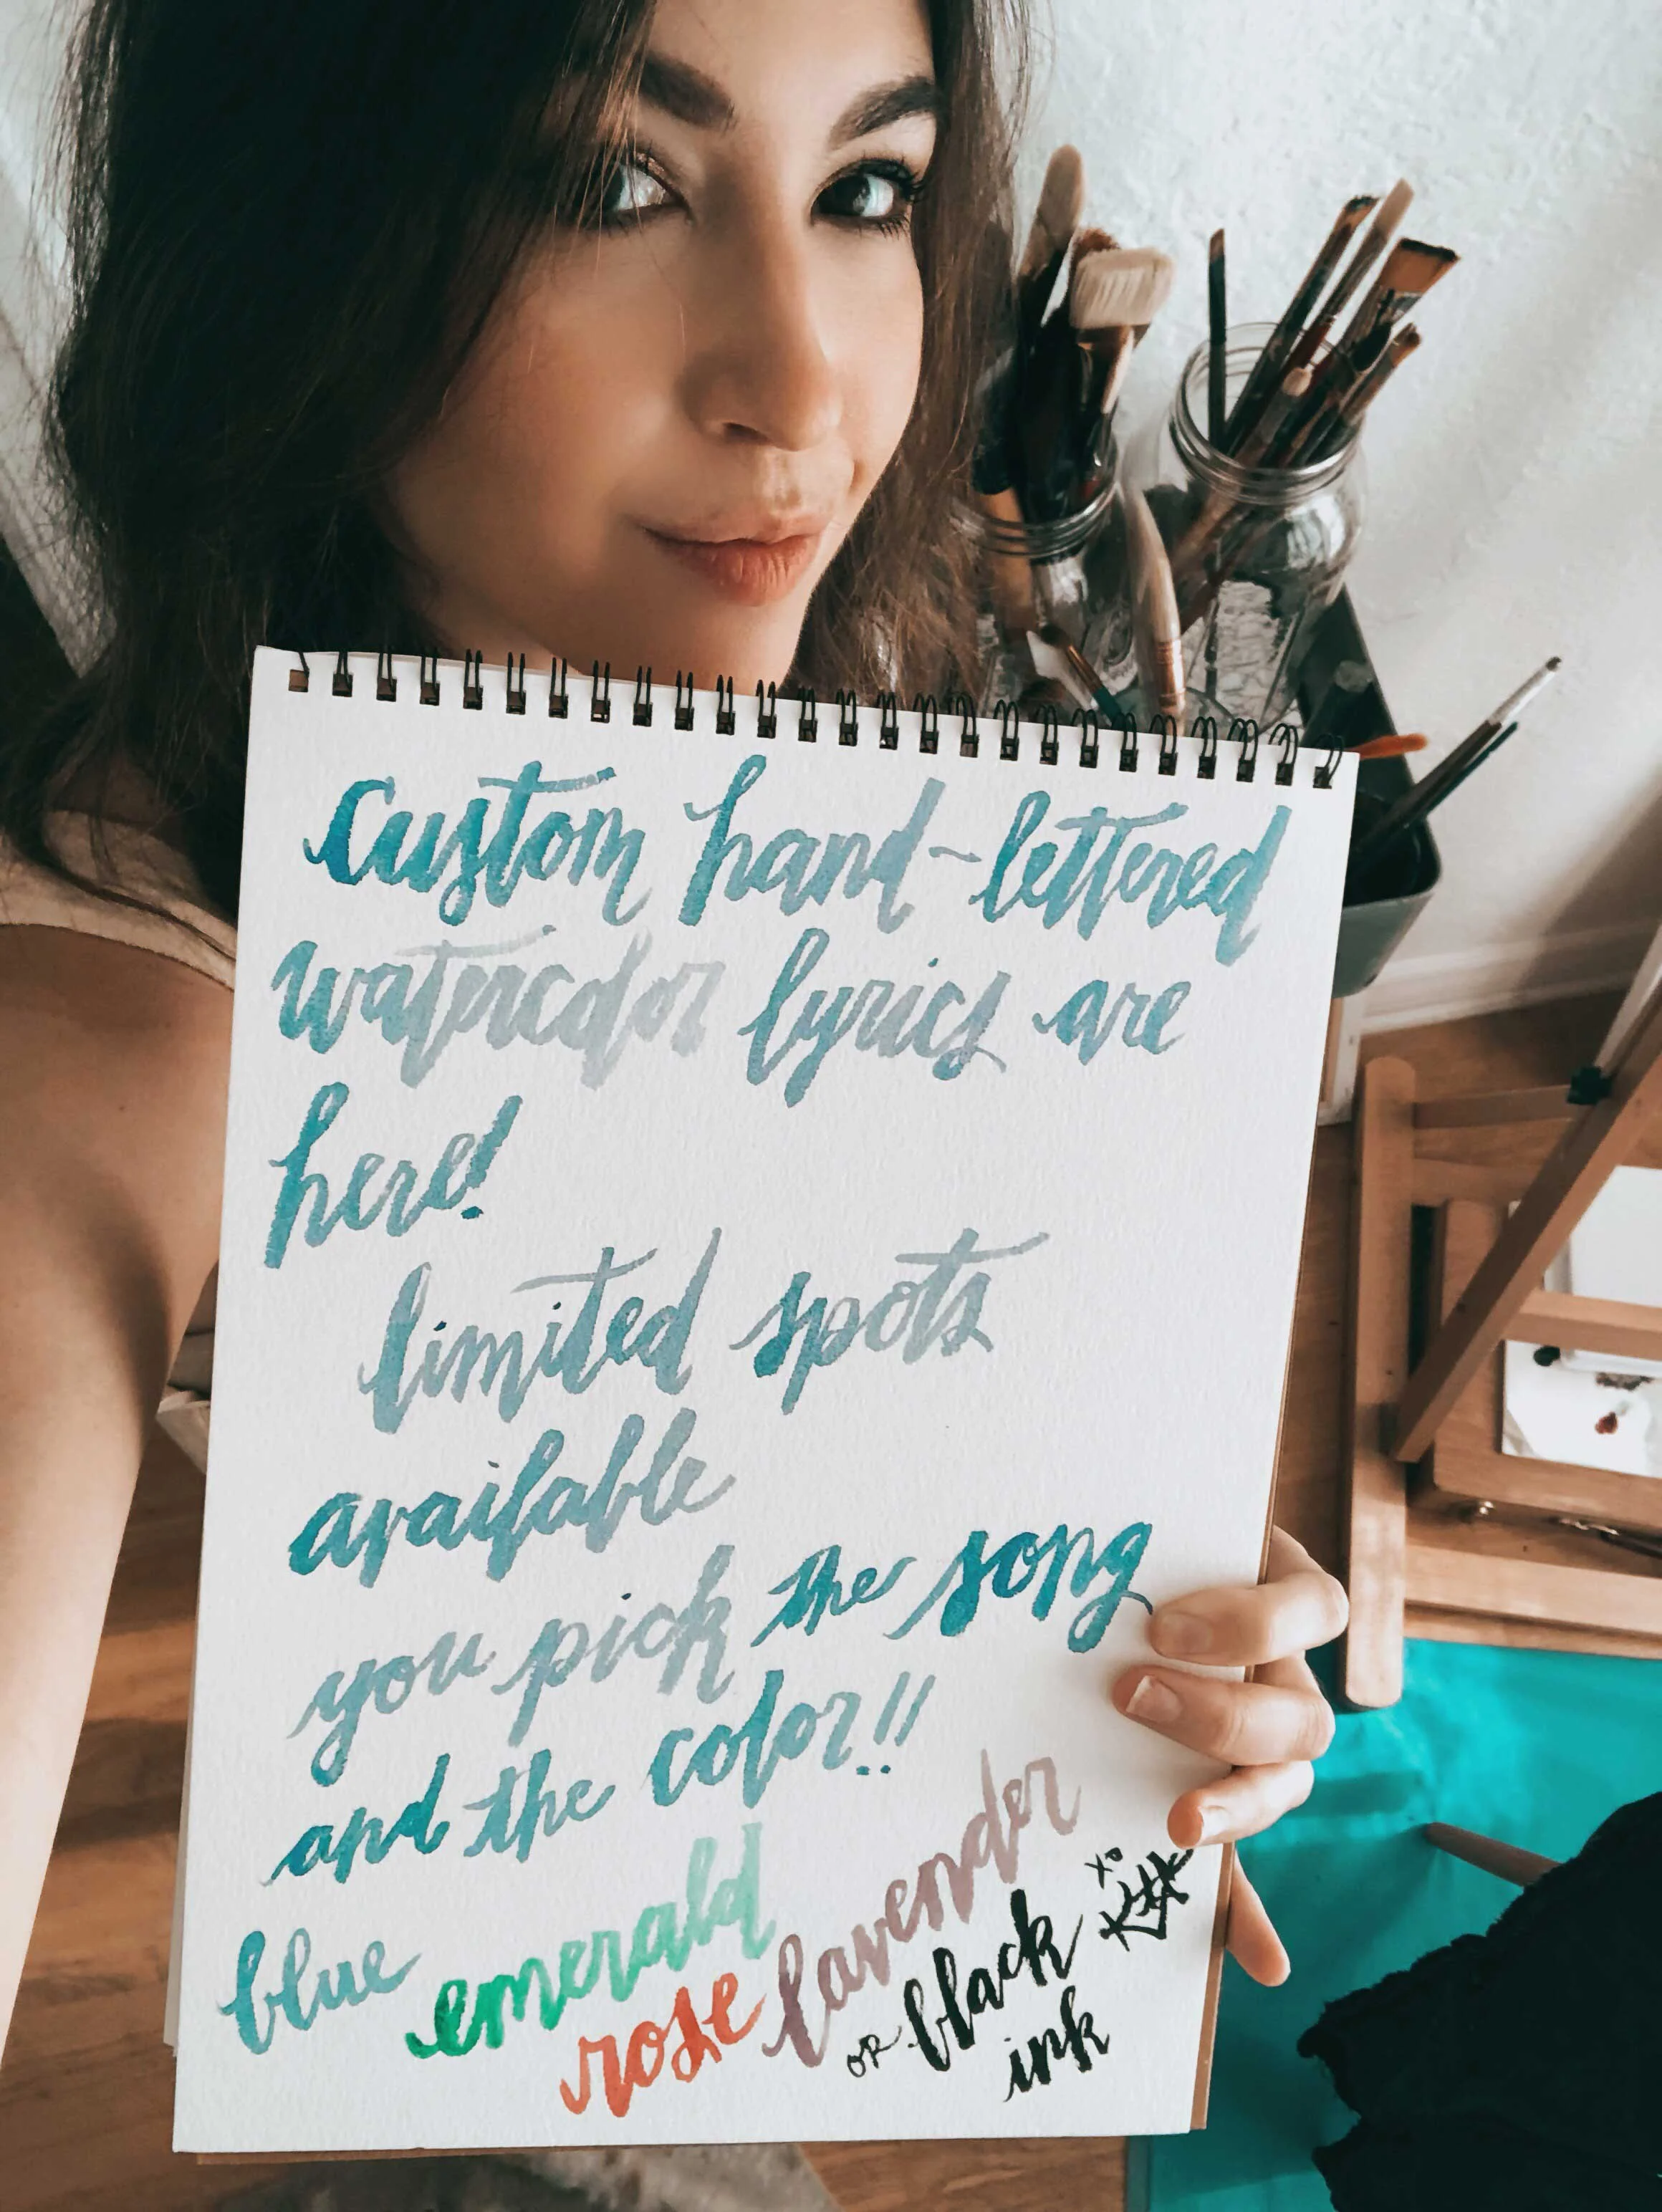 Custom hand-lettered
watercolor lyrics are
here!
limited spots
available
you pick the song
and the color!!
blue emerald lavender
rose or black
ink
xo